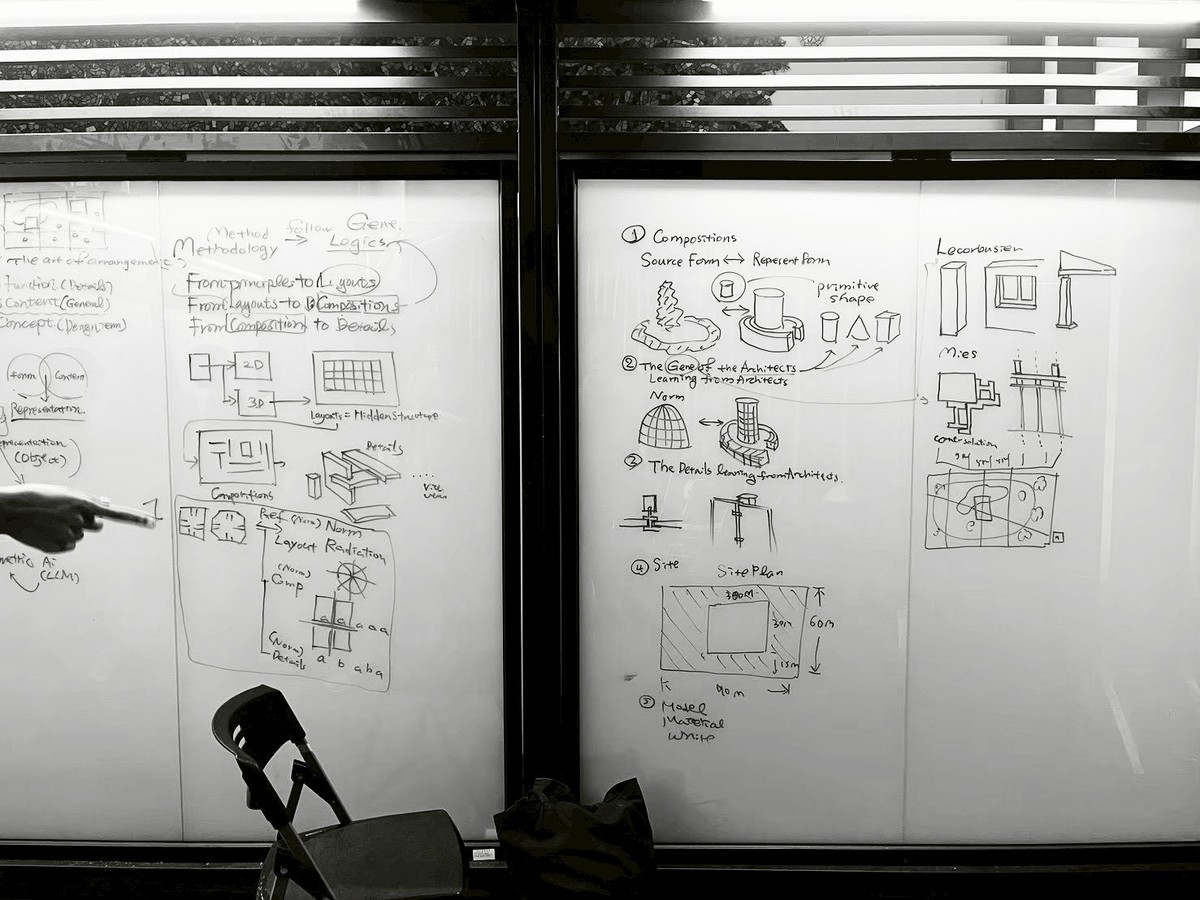 The art of arrangement
Function (Details)
Content (General)
Concept (Design term)
Form
Content
Representation
(Object)
Ai
(LLM)
Method follow Gene.
Methodology → Logics
From principles to Layouts
From Layouts to Compositions
From Composition to Details
2D
3D
Layouts = Hidden Structure
Compositions
Details
Ref. (Norm) Norm
Layout Radiction
(Norm)
Comp
a a a a a
(Norm)
Details
a b a b a
① Compositions
Source Form ↔ Represent Form
primitive
shape
② The Gene of the Architects
Learning from Architects
Norm
③ The Details learing from Architects.
④ Site
Site Plan
300m
30m
60m
15m
90m
⑤ Model
Material
White
Lecorbusien
Mies